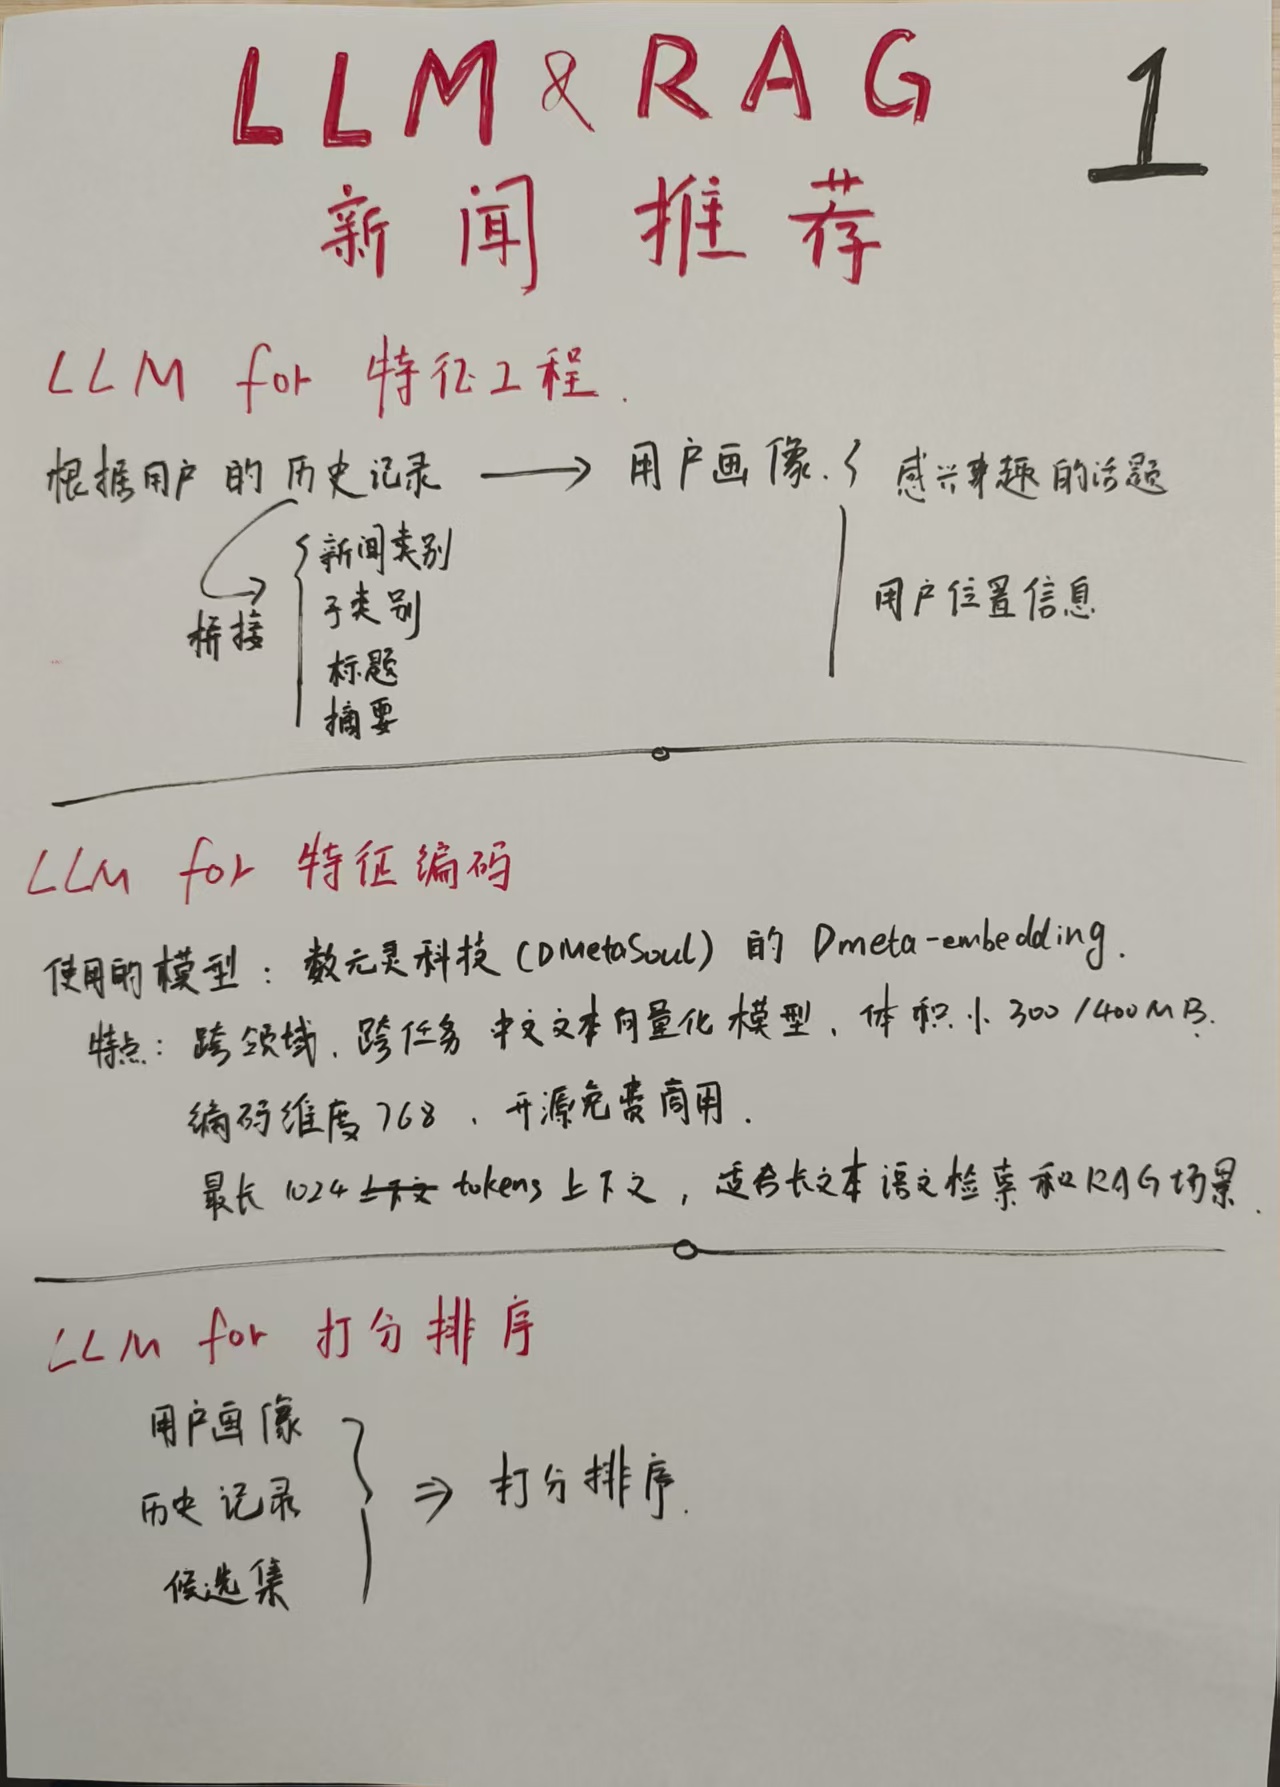 LLM & RAG 1
新闻推荐
LLM for 特征工程.
根据用户的历史记录 → 用户画像. { 感兴趣的话题
用户位置信息
拼接 { 新闻类别
子类别
标题
摘要
LLM for 特征编码
使用的模型：数元灵科技（DMetaSoul）的 Dmeta-embedding.
特点：跨领域、跨任务 中文文本向量化模型、体积小 300/400MB.
编码维度768、开源免费商用.
最长 1024 上下文 tokens 上下文，适合长文本语文检索和RAG场景.
LLM for 打分排序
用户画像
历史记录 } ⇒ 打分排序.
候选集